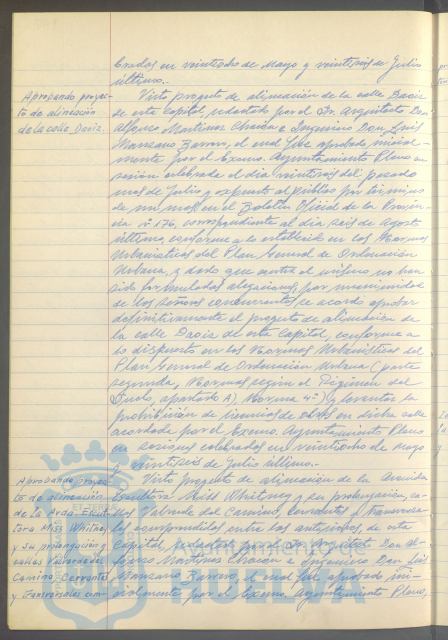 bradas en veintiocho de Mayo y veintiseis de Julio
último.-
Aprobando proyec-
to de alineación
de la calle Daoiz.
Visto proyecto de alineación de la calle Daoiz
de esta Capital, redactado por el Sr. Arquitecto Don
Alfonso Martinez Chacón e Ingeniero Don Luis
Manzano Barrero, el cual fué aprobado inicial-
mente por el Excmo. Ayuntamiento Pleno en
sesión celebrada el día veintiseis del pasado
mes de Julio y expuesto al público por término
de un mes en el Boletín Oficial de la Provin-
cia nº 176, correspondiente al día seis de Agosto
último, conforme a lo establecido en las Normas
Urbanísticas del Plan General de Ordenación
Urbana, y dado que contra el mismo no han
sido formuladas alegaciones, por unanimidad
de los señores concurrentes se acordó aprobar
definitivamente el proyecto de alineación de
la calle Daoiz de esta Capital, conforme a
lo dispuesto en las Normas Urbanísticas del
Plan General de Ordenación Urbana (parte
segunda, Normas según el Régimen del
Suelo, apartado A) Norma 4ª) y levantar la
prohibición de licencias de obras en dicha calle
acordada por el Excmo. Ayuntamiento Pleno
en sesiones celebradas en veintiocho de Mayo
y veintiseis de Julio último.-
Aprobando proyec-
to de alineación
de la Avda. Escul-
tora Miss Whitney
y su prolongación y
calles Valverde del
Camino, Cervantes
y Transversales com-
Visto proyecto de alineación de la Avenida
Escultora Miss Whitney y su prolongación, ca-
lles Valverde del Camino, Cervantes y Transversa-
les comprendidas entre las anteriores, de esta
Capital, redactado por el Sr. Arquitecto Don Al-
fonso Martinez Chacón e Ingeniero Don Luis
Manzano Barrero, el cual fué aprobado ini-
cialmente por el Excmo. Ayuntamiento Pleno,
Ayuntamiento de
HUELVA